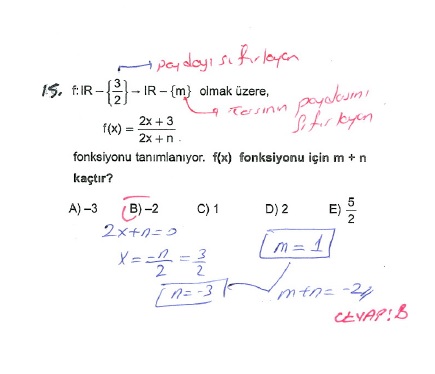 paydayı sıfırlayan
15. f: IR – {3/2} → IR – {m} olmak üzere,
Tersinin paydasını
sıfırlayan
f(x) = (2x + 3)/(2x + n)
fonksiyonu tanımlanıyor. f(x) fonksiyonu için m + n
kaçtır?
A) –3 B) –2 C) 1 D) 2 E) 5/2
2x+n=0
m = 1
x = -n/2 = 3/2
n = -3
m+n = -2//
CEVAP: B